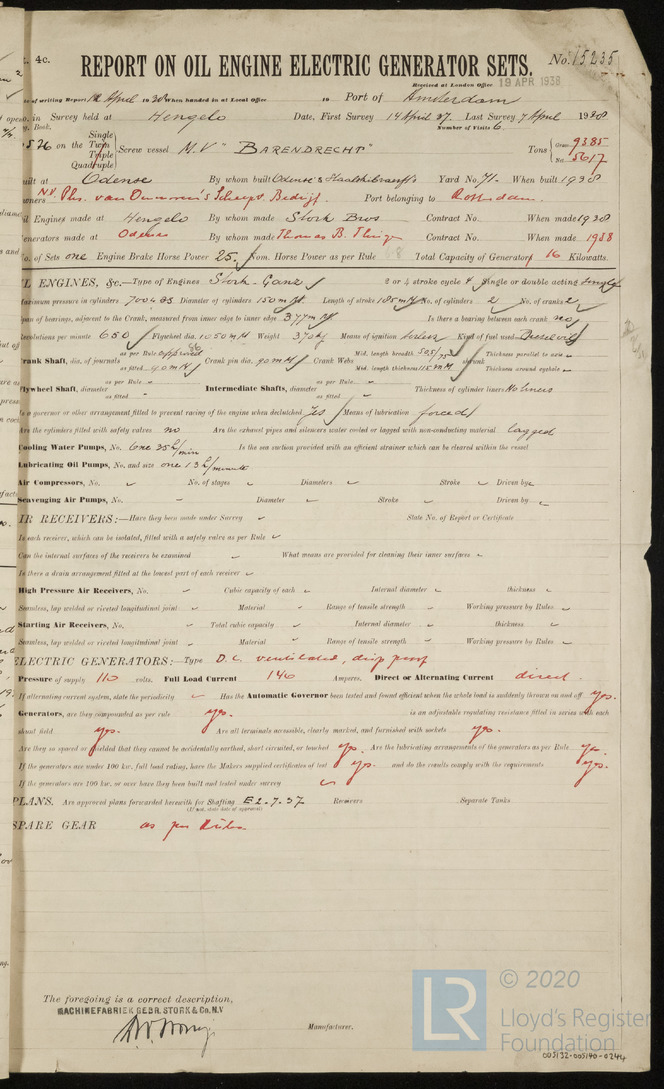 4c.
REPORT ON OIL ENGINE ELECTRIC GENERATOR SETS.
No. 15235
Received at London Office 19 APR 1938
of writing Report 12 April 1938 When handed in at Local Office 19 Port of Amsterdam
in Survey held at Hengelo Date, First Survey 14 April 37. Last Survey 7 April 1938
Book. Number of Visits 6.
526 on the Single Twin Triple Quadruple Screw vessel M.V "BARENDRECHT" Tons Gross 9385 Net 5617
uilt at Odense By whom built Odense's Yard No. 71. When built 1938
wners N.V. Phs. van Ommeren's Scheepv. Bedrijf. Port belonging to Rotterdam.
il Engines made at Hengelo By whom made Stork Bros Contract No. When made 1938
enerators made at Odense By whom made Thomas B. Thrige Contract No. When made 1938
o. of Sets one Engine Brake Horse Power 25. Nom. Horse Power as per Rule Total Capacity of Generators 16 Kilowatts.
IL ENGINES, &c.—Type of Engines Stork Ganz 2 or 4 stroke cycle 4 Single or double acting single
aximum pressure in cylinders Diameter of cylinders 150 m/m Length of stroke 185 m/m No. of cylinders 2 No. of cranks 2
pan of bearings, adjacent to the Crank, measured from inner edge to inner edge 377 m/m Is there a bearing between each crank no
evolutions per minute 650 Flywheel dia. 1050 m/m Weight Means of ignition Kind of fuel used Diesel oil
rank Shaft, dia. of journals as per Rule approved as fitted 90 m/m Crank pin dia. 90 m/m Crank Webs Mid. length breadth Mid. length thickness shrunk Thickness parallel to axis Thickness around eyehole
lywheel Shaft, diameter as per Rule as fitted Intermediate Shafts, diameter as per Rule as fitted Thickness of cylinder liners No liners
s a governor or other arrangement fitted to prevent racing of the engine when declutched yes Means of lubrication forced
re the cylinders fitted with safety valves no Are the exhaust pipes and silencers water cooled or lagged with non-conducting material lagged
ooling Water Pumps, No. one 35 l/min Is the sea suction provided with an efficient strainer which can be cleared within the vessel
ubricating Oil Pumps, No. and size one 13 l/minute
ir Compressors, No. No. of stages Diameters Stroke Driven by
cavenging Air Pumps, No. Diameter Stroke Driven by
IR RECEIVERS:—Have they been made under Survey State No. of Report or Certificate
s each receiver, which can be isolated, fitted with a safety valve as per Rule
Can the internal surfaces of the receivers be examined What means are provided for cleaning their inner surfaces
s there a drain arrangement fitted at the lowest part of each receiver
High Pressure Air Receivers, No. Cubic capacity of each Internal diameter thickness
Seamless, lap welded or riveted longitudinal joint Material Range of tensile strength Working pressure by Rules
Starting Air Receivers, No. Total cubic capacity Internal diameter thickness
Seamless, lap welded or riveted longitudinal joint Material Range of tensile strength Working pressure by Rules
ELECTRIC GENERATORS:—Type D.C. ventilated, drip proof
Pressure of supply 110 volts. Full Load Current 146 Amperes. Direct or Alternating Current direct.
If alternating current system, state the periodicity Has the Automatic Governor been tested and found efficient when the whole load is suddenly thrown on and off yes.
Generators, are they compounded as per rule yes. is an adjustable regulating resistance fitted in series with each
shunt field yes. Are all terminals accessible, clearly marked, and furnished with sockets yes.
Are they so spaced or shielded that they cannot be accidentally earthed, short circuited, or touched yes. Are the lubricating arrangements of the generators as per Rule yes.
If the generators are under 100 kw. full load rating, have the Makers supplied certificates of test yes. and do the results comply with the requirements yes.
If the generators are 100 kw. or over have they been built and tested under survey
PLANS. Are approved plans forwarded herewith for Shafting E 2.7.37 Receivers Separate Tanks
(If not, state date of approval)
SPARE GEAR as per Rules
The foregoing is a correct description,
MACHINEFABRIEK GEBR. STORK & Co. N.V
Manufacturer.
LR © 2020
Lloyd's Register
Foundation
005132-005140-0244